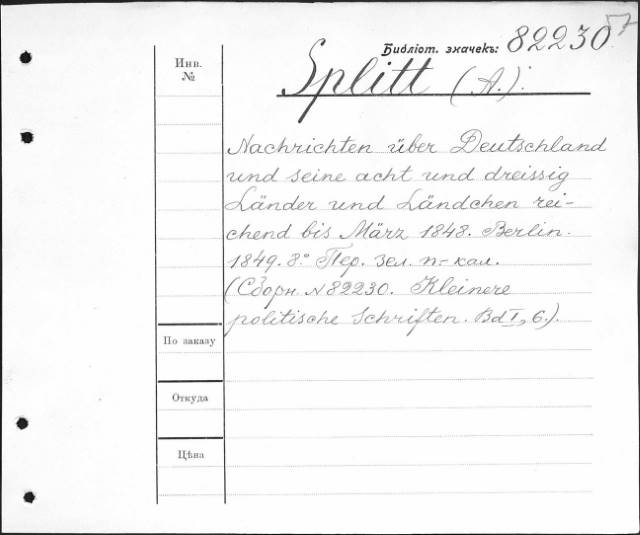 Библіот. значекъ: 82230
Инв.
№
Splitt (A.).
Nachrichten über Deutschland
und seine acht und dreissig
Länder und Ländchen rei-
chend bis März 1848. Berlin.
1849. 8.° Пер. зел. п.- кал.
(Сборн. №82230. Kleinere
politische Schriften. Bd I, 6.).
По заказу
Откуда
Цѣна